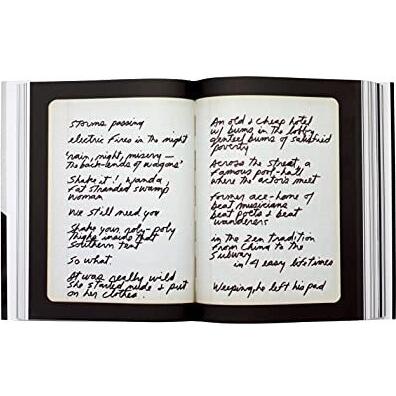 storms passing
electric fires in the night
'rain, night, misery —
the back-ends of wagons'
Shake it! Wanda,
fat stranded swamp
woman
We still need you
Shake your roly-poly
thighs inside that
Southern tent
So what.
It was really wild
She started nude & put
on her clothes.
An old & cheap hotel
w/ bums in the lobby
genteel bums of satisfied
poverty
Across the street, a
famous pool-hall
where the actors meet
former ace-home of
beat musicians
beat poets & beat
wanderers
in the Zen tradition
from China to the
Subway
in 4 easy lifetimes
Weeping, he left his pad